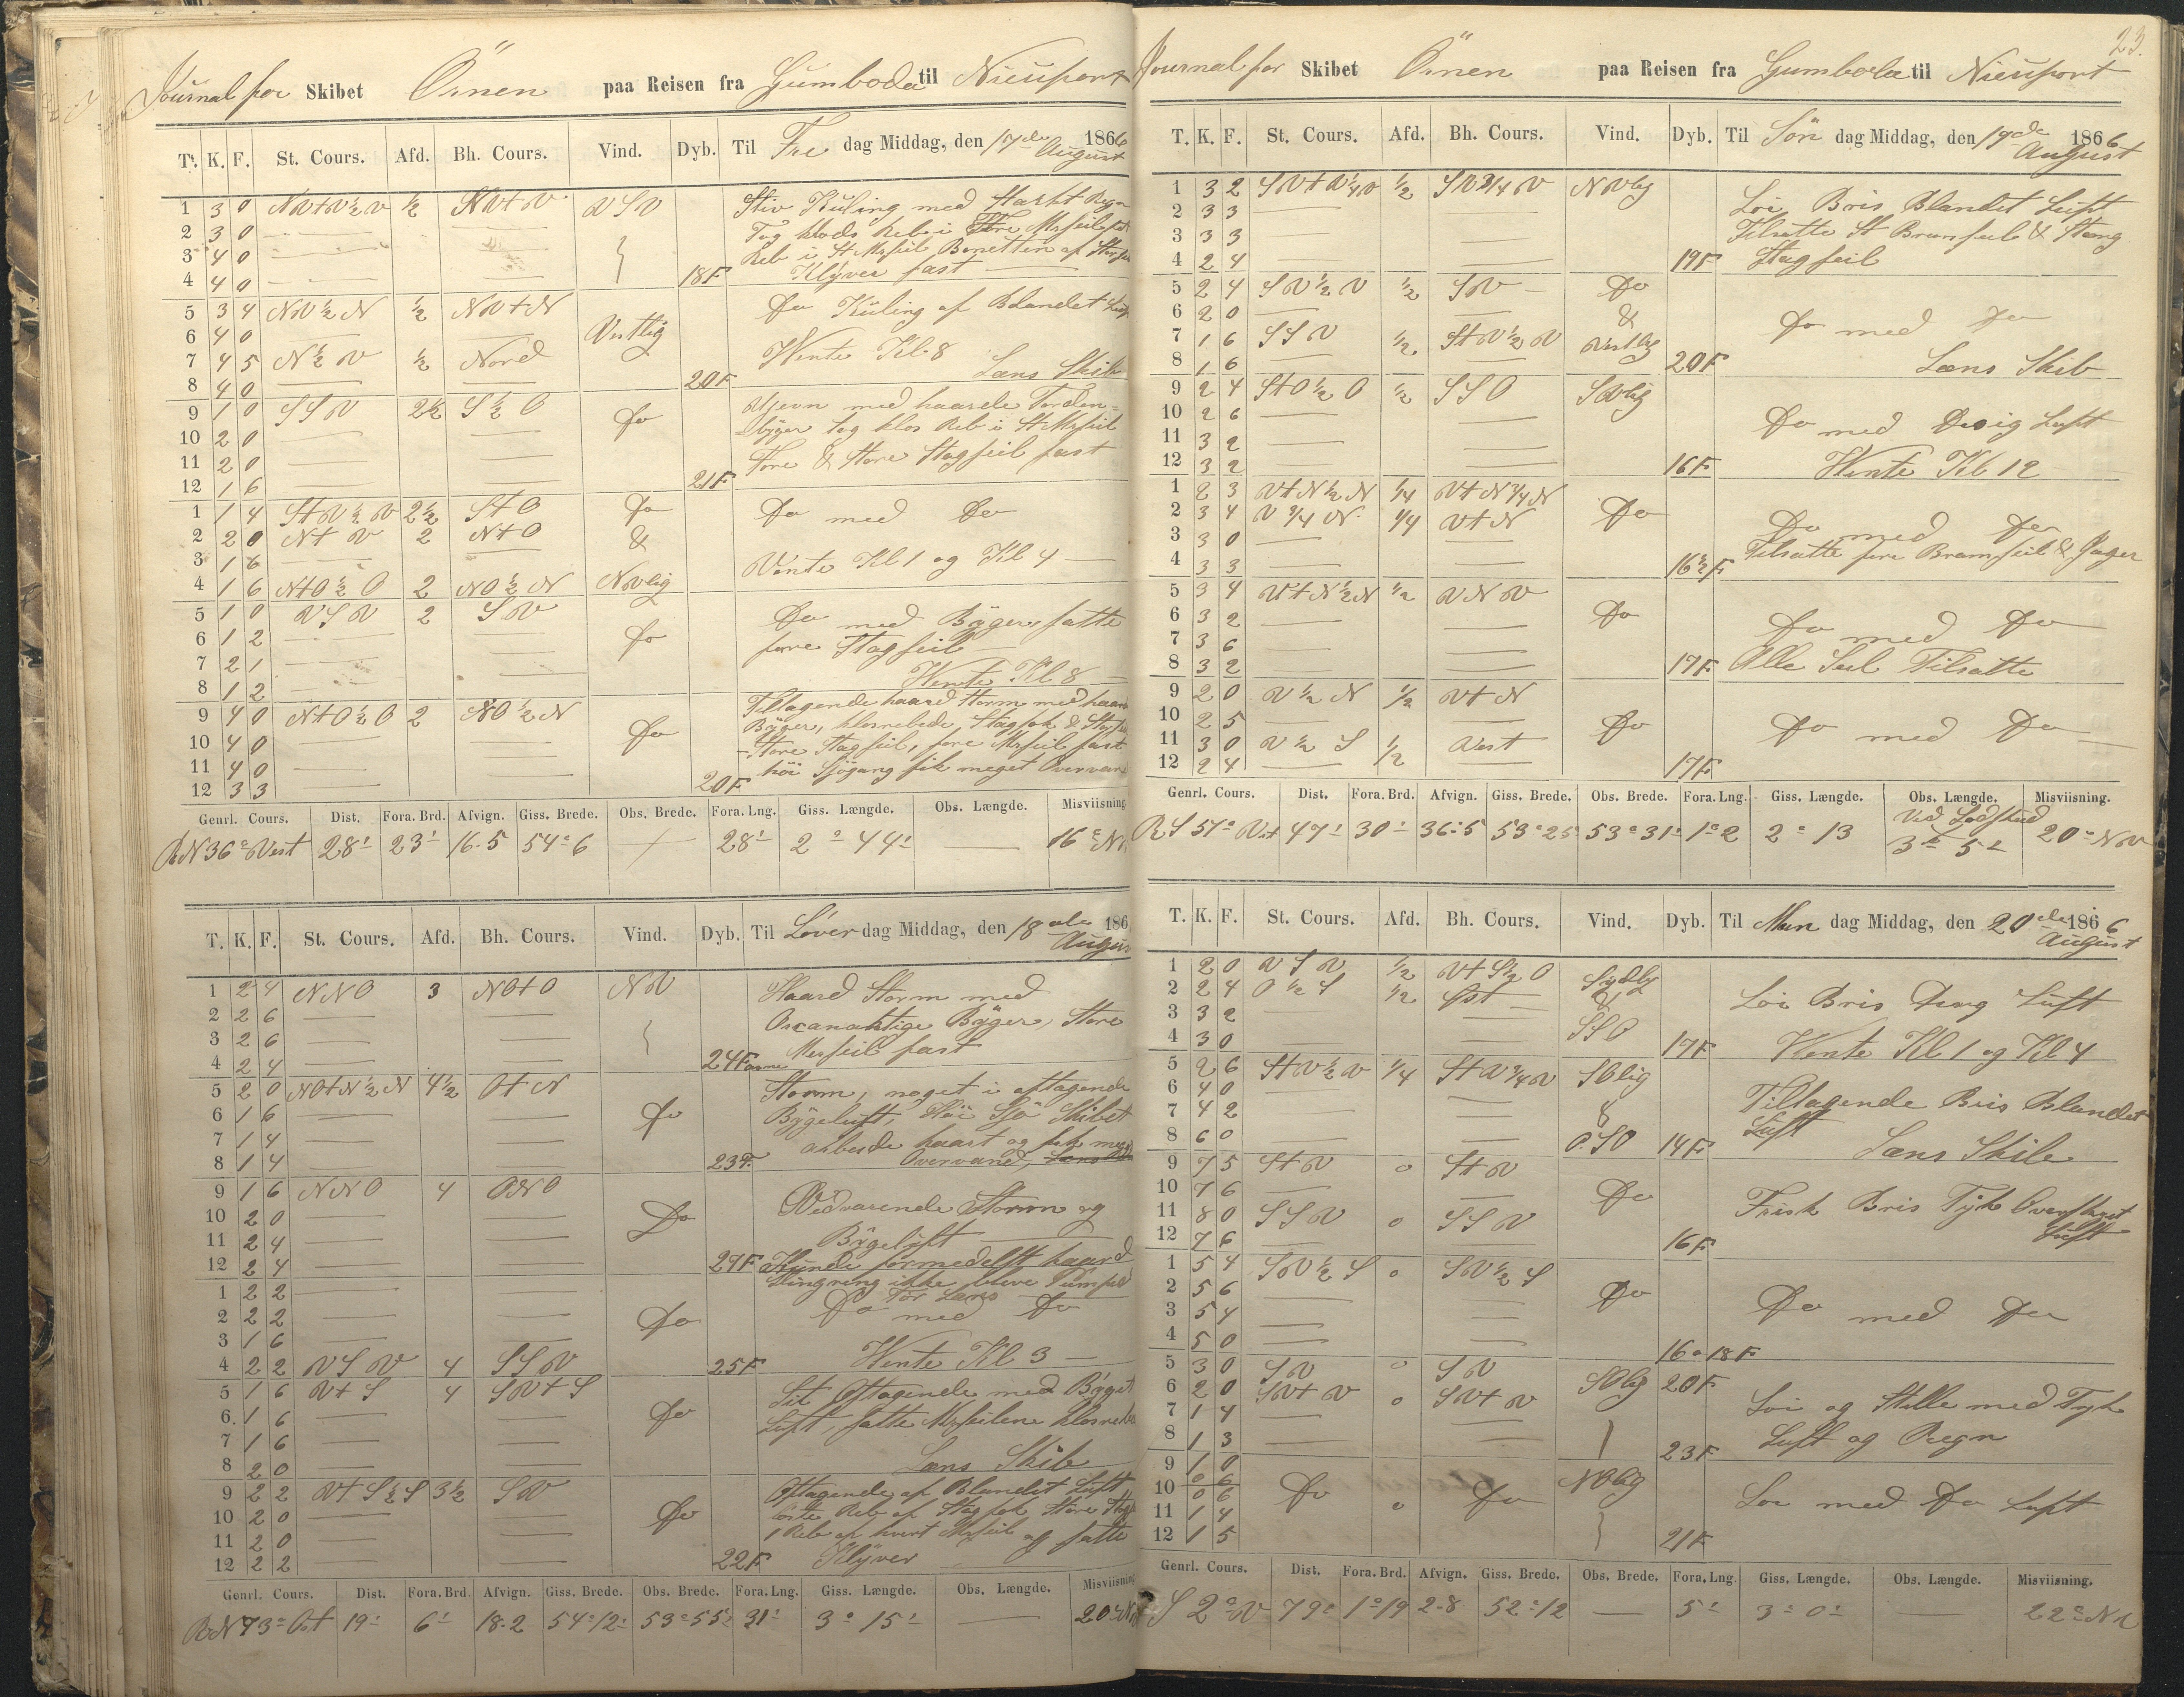 Journal for Skibet Örnen paa Reisen fra Gumboda til Nieuport
T. K. F. St. Cours. Afd. Bh. Cours. Vind. Dyb. Til Fre dag Middag, den 17de August 1866
1 3 0 NV+V½V ½ NV+V VSV Stiv Kuling med Stærkt Regn
2 3 0 Tog klods Reb i Store Mrsseil
3 4 0 Reb i St Mrsseil Bonetten af Stor
4 4 0 18F Klÿver fast
5 3 4 NV½N ½ NV+N Do Kuling af Blandet Luft
6 4 0 Vestlig
7 4 5 N½V ½ Nord Vente Kl. 8
8 4 0 20F Læns Skib
9 1 0 SSV 2½ S½O Do Ujevn med haarde Torden-
10 2 0 bÿger tog klos Reb i St Mrsseil
11 2 0 Fore & Store Stagseil fast
12 1 6 21F
1 1 4 StV½V 2½ StO Do Do med Do
2 2 0 N+V 2 N+O &
3 1 6 Vente Kl 1 og Kl 4
4 1 6 N+O½O 2 NO½N NVlig
5 1 0 VSV 2 SV Do med Bÿger, satte
6 1 2 Do fore Stagseil
7 2 1
8 1 2 Vente Kl 8
9 4 0 N+O½O 2 NO½N Tiltagende haard Storm med haarde
10 4 0 Do Bÿger, klosrebede Stagfok & Stor
11 4 0 Store Stagseil, fore Mrsseil fast
12 3 3 20F höi Sjögang fik meget Overvand
Genrl. Cours. Dist. Fora. Brd. Afvign. Giss. Brede. Obs. Brede. Fora. Lng. Giss. Længde. Obs. Længde. Misviisning.
RN36° Vest 28' 23' 16.5 54°6 28' 2° 44' 16° N
T. K. F. St. Cours. Afd. Bh. Cours. Vind. Dyb. Til Löver dag Middag, den 18de August 186
1 2 4 NNO 3 NO+O NV Haard Storm med
2 2 6 Orcanaktige Bÿger, Store
3 2 6 Mersseil fast
4 2 4 24Favne
5 2 0 NO+N½N 4½ O+N Storm, noget i aftagende
6 1 6 Do Bÿgeluft, Höi Sjö Skibet
7 1 4 arbeide haart og fik meget
8 1 4 23F Overvand,
9 1 6 NNO 4 ONO Vedvarende Storm og
10 2 0 Do Bÿgeluft
11 2 4
12 2 4 27F Kunde formedelst haard
1 2 2 Slingring ikke blive Pumpet
2 2 2 Do Tör Læns Do med Do
3 1 6
4 2 2 VSV 4 SSV 25F Vente Kl 3
5 1 6 V+S 4 SV+S Lit Aftagende med Bÿget
6. 1 6 Do Luft, satte Mrsseilene klosrebede
7 1 6
8 2 0 Læns Skib
9 2 2 V+S½S 3½ SV Aftagende af Blandet Luft
10 2 0 Do löste Reb af Stagfok Store Stag
11 2 0 1 Reb af hvert Mrsseil og satte
12 2 2 22F Klÿver
Genrl. Cours. Dist. Fora. Brd. Afvign. Giss. Brede. Obs. Brede. Fora. Lng. Giss. Længde. Obs. Længde. Misviisning
RN73° Ost 19' 6' 18.2 54°12' 53°55' 31' 3° 15' 20° N
23.
Journal for Skibet Örnen paa Reisen fra Gumbola til Nieuport
T. K. F. St. Cours. Afd. Bh. Cours. Vind. Dyb. Til Sön dag Middag, den 19de August 1866
1 3 2 SV+V¼V ½ SV¾V NVlig
2 3 3 Löi Bris Blandet Luft
3 3 3 Tilsatte St Bramseil & Stang
4 2 4 19F Stagseil
5 2 4 SV½V ½ SV Do
6 2 0 & Do med Do
7 1 6 SSV ½ StV½V Vestlig
8 1 6 20F Læns Skib
9 2 4 StO½O ½ SSO SVlig
10 2 6 Do med Disig Luft
11 3 2
12 3 2 16F Vente Kl 12
1 2 3 V+N½N ¼ V+N¾N
2 3 4 V¾N ¼ V+N Do
3 3 0 Do med Do
4 3 3 16½F Tilsatte fore Bramseil & Jager
5 3 4 V+N½N ½ VNV
6 3 2 Do
7 3 6 Do med Do
8 3 2 17F Alle Seil Tilsatte
9 2 0 V½N ½ V+N
10 2 5 Do
11 3 0 V½S ½ Vest Do med Do
12 2 4 17F
Genrl. Cours. Dist. Fora. Brd. Afvign. Giss. Brede. Obs. Brede. Fora. Lng. Giss. Længde. Obs. Længde. Misviisning.
RS 51° Vst 47' 30' 36'5 53°25 53°31' 1°2 2° 13 Ved Lodskud 3° 5' 20° NV
T. K. F. St. Cours. Afd. Bh. Cours. Vind. Dyb. Til Man dag Middag, den 20de August 1866
1 2 0 VSV ½ V+S½O Sydlig
2 2 4 O½S ½ Øst & Löi Bris Luft
3 3 2 SSO
4 3 0 17F Vente Kl 1 og Kl 4
5 2 6 StV½V ¼ StV¾V SOlig
6 4 0 Tiltagende Bris Blandet
7 4 2 & Luft
8 6 0 OSO 14F Læns Skib
9 7 5 StV 0 StV
10 7 6 Do
11 8 0 SSV 0 SSV Frisk Bris Tÿk Overskyet
12 7 6 16F Luft
1 5 4 SV½S 0 SV½S
2 5 6 Do
3 5 4 Do med Do
4 5 0 16 a 18F
5 3 0 SV 0 SV SOlig 20F
6 2 0 SV+V 0 SV+V
7 1 4 Löi og Stille med Tyk
8 1 3 23F Luft og Regn
9 1 0 NOlig
10 0 6 Do 0 Do Löi med Do Luft
11 1 4
12 1 5 21F
Genrl. Cours. Dist. Fora. Brd. Afvign. Giss. Brede. Obs. Brede. Fora. Lng. Giss. Længde. Obs. Længde. Misviisning.
S 2° V 79' 1°19 2.8 52°12 5' 3° 0' 22° NV